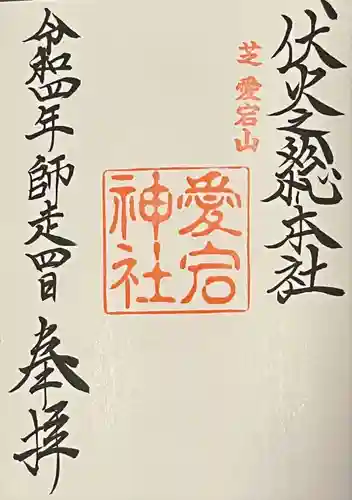 伏火之総本社
芝愛宕山
愛宕
神社
令和四年師走四日
奉拝